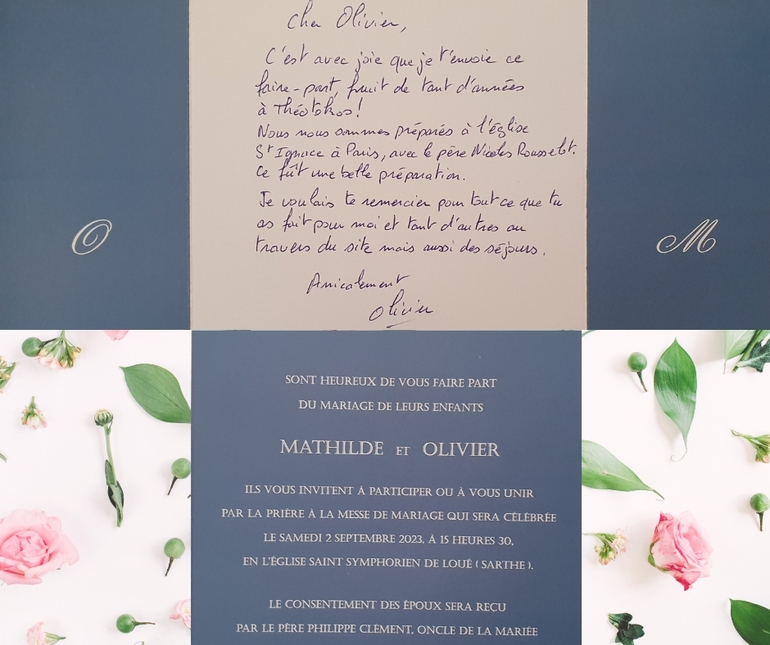 Cher Olivier,
C'est avec joie que je t'envoie ce
faire-part, fruit de tant d'années
à Théotokos!
Nous nous sommes préparés à l'église
St Ignace à Paris, avec le père Nicolas Rousselot.
Ce fût une belle préparation.
Je voulais te remercier pour tout ce que tu
as fait pour moi et tant d'autres au
travers du site mais aussi des séjours.
Amicalement
Olivier
O
M
SONT HEUREUX DE VOUS FAIRE PART
DU MARIAGE DE LEURS ENFANTS
MATHILDE ET OLIVIER
ILS VOUS INVITENT À PARTICIPER OU À VOUS UNIR
PAR LA PRIÈRE À LA MESSE DE MARIAGE QUI SERA CÉLÉBRÉE
LE SAMEDI 2 SEPTEMBRE 2023, À 15 HEURES 30,
EN L'ÉGLISE SAINT SYMPHORIEN DE LOUÉ ( SARTHE ).
LE CONSENTEMENT DES ÉPOUX SERA REÇU
PAR LE PÈRE PHILIPPE CLÉMENT, ONCLE DE LA MARIÉE